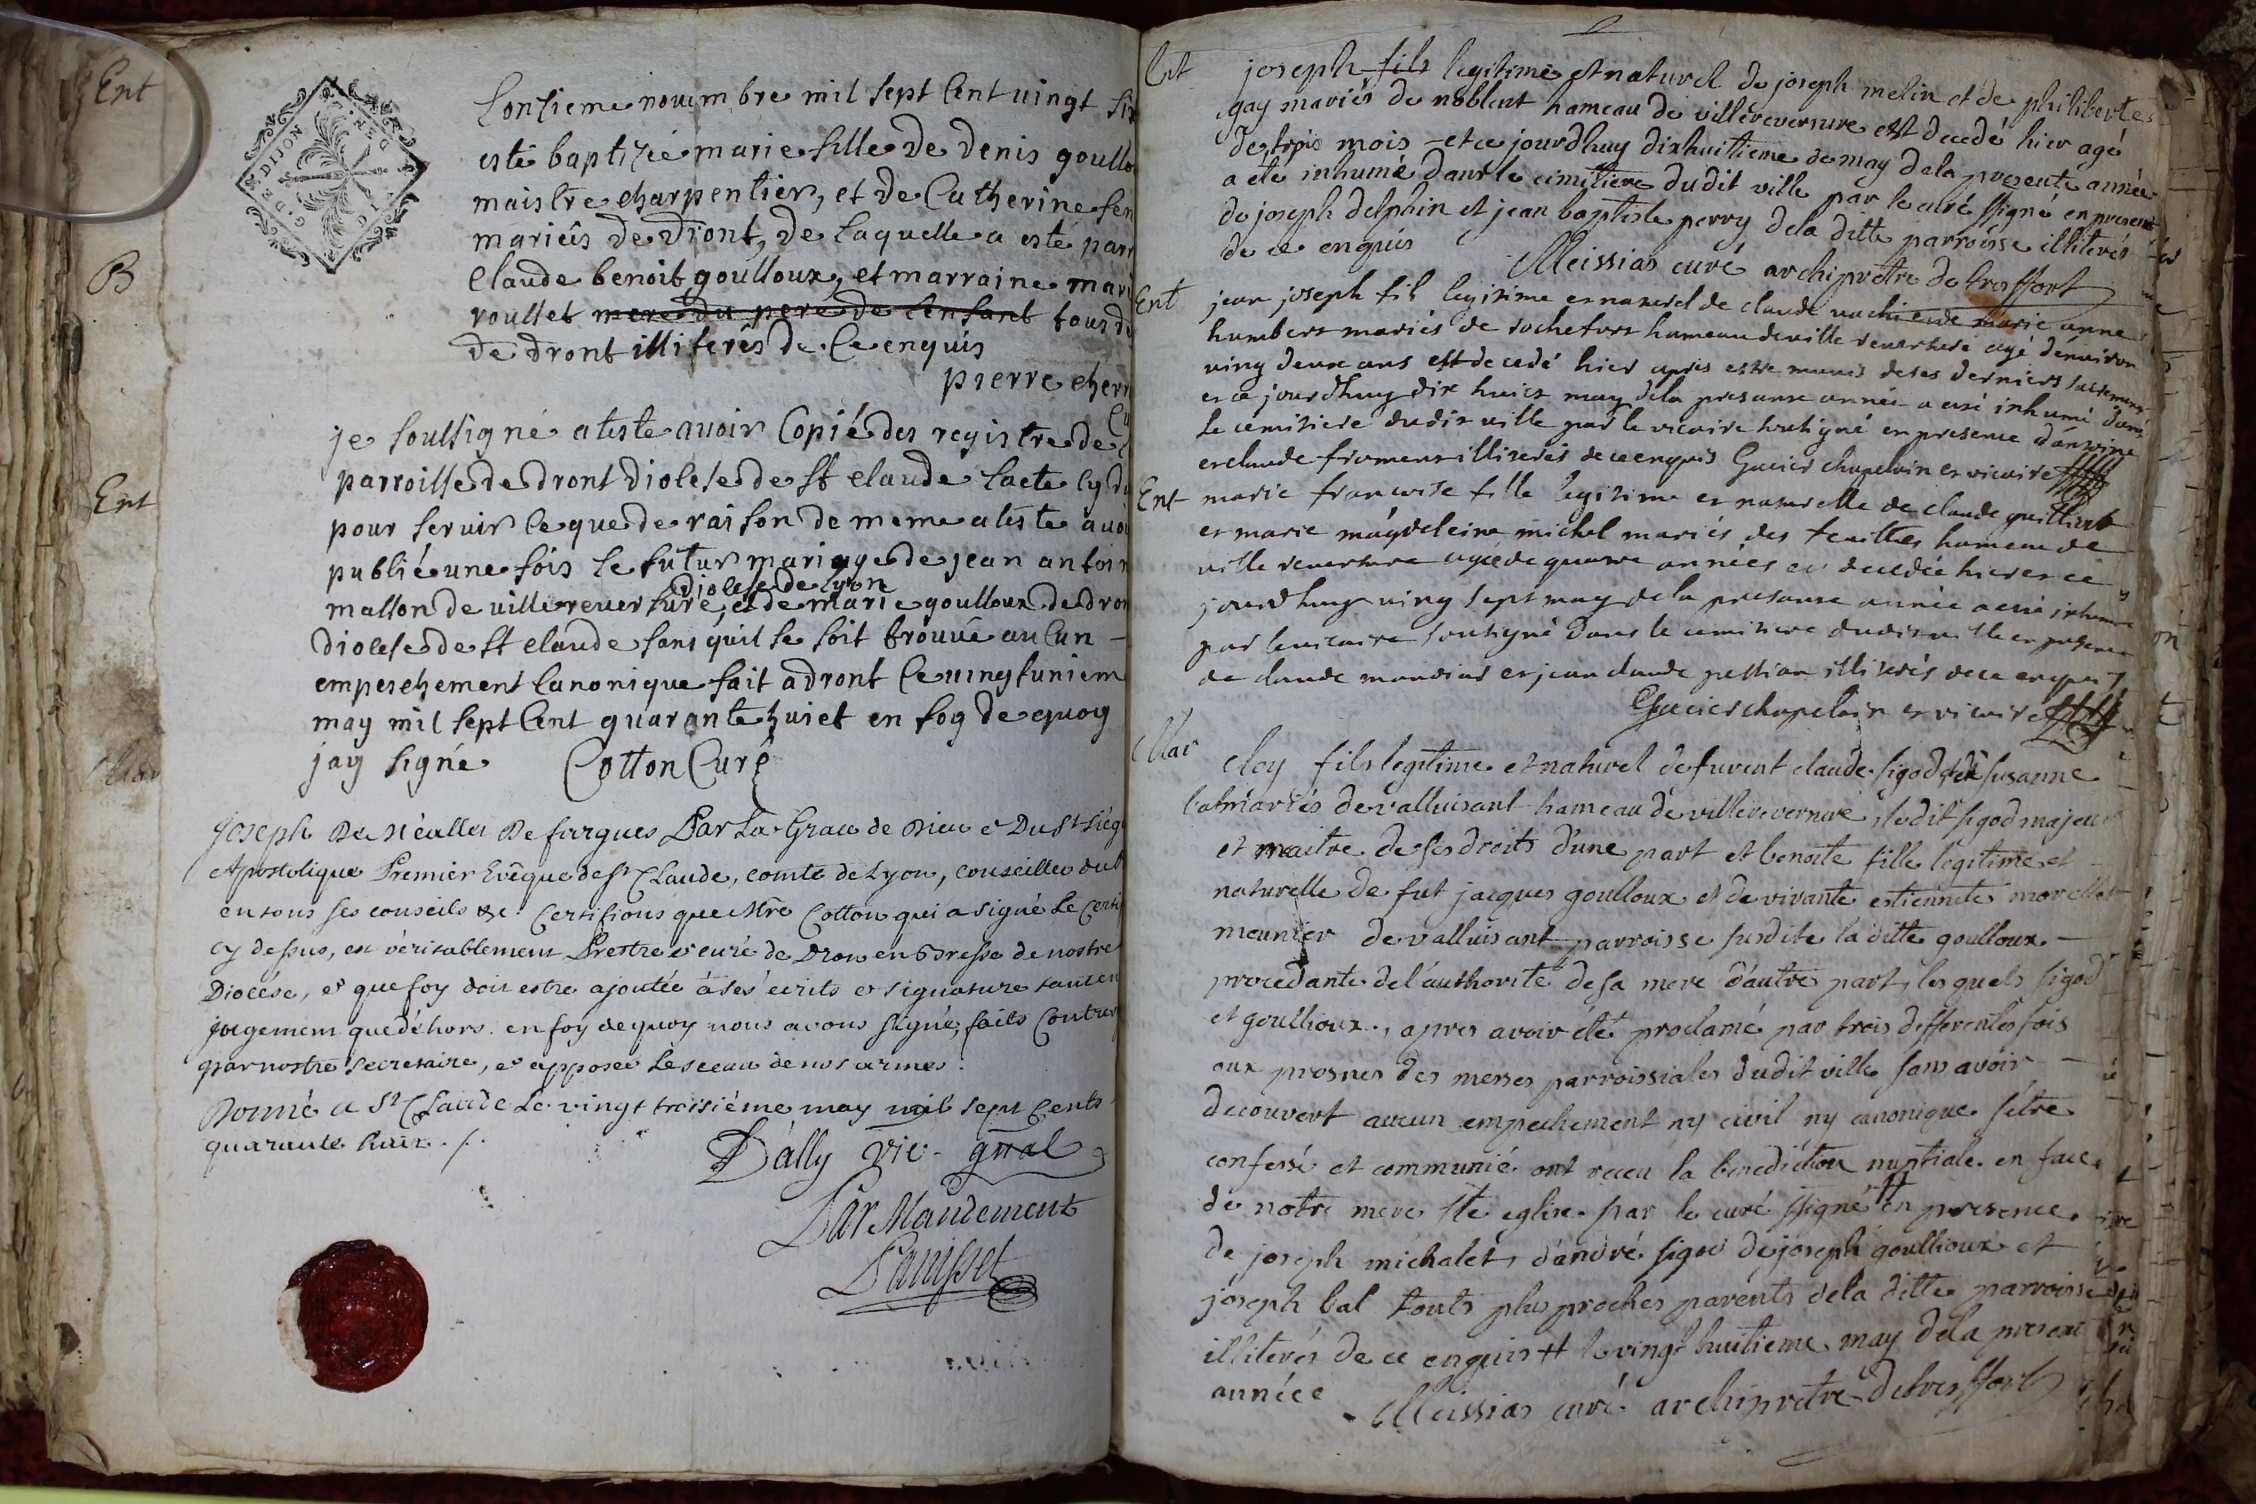 Ent
B
Ent
Mar
G. DE DIJON
Lonsieme nouembre mil sept Cent uingt six
esté baptizée marie fille de denis goullo
maistre charpentier, et de Catherine fen
mariés de dront, de laquelle a esté parr
Claude benoit goulloux, et marraine mari
roullet mere du pere de lenfant tous d
de dront illiterés de Ce enquis
pierre cherr
Cu
je soussigné ateste auoir Copié des registre de
parroisse de dront diocese de st claude lacte cy d
pour seruir ce que de raison de meme ateste auoi
publié une fois le futur mariage de jean antoin
diocese de lyon
mallon de villereuersure, et de marie goulloux de dron
diocese de st claude sans quil se soit trouué aucun
empeschement Canonique fait a dront le uingtuniem
may mil sept Cent quarante huict en foy de quoy
jay signé Cotton Curé
joseph De Méallet De fargues Par La Grace de Dieu & Du St Siége
Apostolique Premier Evêque de St Claude, comte de Lyon, conseiller du
en tous ses conseils &c. Certifions que Mre Cotton qui a signé Le Certi
cy dessus, est véritablement Prestre & curé de Dron en Bresse de nostre
Diocése, & que foy doit estre ajoutée à ses ecrits & signature tant en
jugement que déhors. en foy de quoy nous avons signé, faits Contre
par nostre secretaire, & apposer le sceau de nos armes.
Donné a St Claude Le vingt troisiéme may mil sept cents
quarante huit ./.
Dally vic. gnal
Par Mandement
Ent
joseph fils legitime et naturel de joseph melin et de philiberte
gay mariés de noblent hameau de villereversure est decedé hier agé
de trois mois et ce jourdhuy dixhuitieme de may de la presente année
a eté inhumé dans le cimetiere dudit ville par le curé ssigné en presence
de joseph delphin et jean baptiste perry de la ditte parroisse illiterés
de ce enquis Meissias curé archipretre de treffort
Ent
jean joseph fil legitime et naturel de claude uachi et de marie anne
humbert mariés de rochefort hameau de ville reuersure agé denuiron
uing deux ans est decedé hier apres estre munis de ses derniers sacrement
et ce jourdhuy dix huict may de la presante année a esté inhumé dans
le cemitiere dudit ville par le vicaire soussigné en presence dantoine
et claude froment illiterés de ce enquis Gacier chapelain et vicaire
Ent
marie francoise fille legitime et naturelle de claude guilliard
et marie magdeleine michel mariés des teuilles hameau de
ville reuersure agée de quatre années est decedée hier et ce
jourdhuy uing sept may de la presante année a esté inhumée
par le uicaire soussigné dans le cemitiere dudit ville en presence
de claude mandias et jean claude passian illiterés de ce enquis
Gacier chapelain et vicaire
Mar
cloy fils legitime et naturel defuncnt claude sigod et de susanne
bat mariés de valluisant hameau de villereversure, ledit sigod majeur
et maitre de ses droits d'une part et benoite fille legitime et
naturelle de fut jacques goulloux et de vivante estiennete morellet
meunier de valluisant parroisse susdite la ditte goulloux
procedante de l'authorité de sa mere d'autre part, les quels sigod
et goullioux, apres avoir été proclamé par trois differentes fois
aux prosnes des messes parroissiales dudit ville sans avoir
decouvert aucun empechement ny civil ny canonique s'etre
confessé et communié ont receu la benediction nuptiale en face
de notre mere ste eglise par le curé ssigné # en presence
de joseph michalet, d'andré sigod de joseph goullioux et
joseph bal touts plus proches parents de la ditte parroisse
illiterés de ce enquis # le vingt huitieme may de la presente
année Meissias curé archipretre de treffort